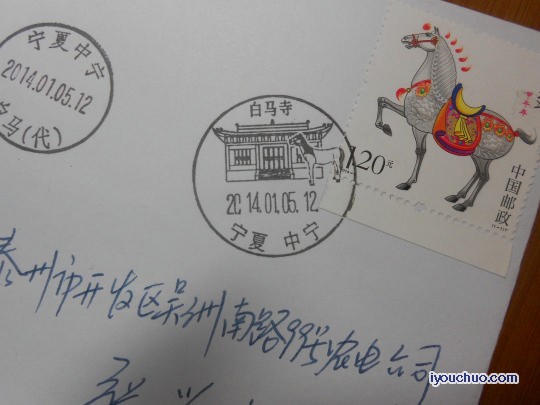 宁夏中宁
2014.01.05.12
马(代)
白马寺
2014.01.05.12
宁夏 中宁
甲午年
1.20元
中国邮政
泰州市开发区吴洲南路99号农电公司
iyouchuo.com